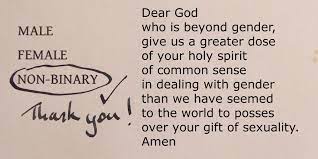 MALE
FEMALE
NON-BINARY
Thank you!
Dear God
who is beyond gender,
give us a greater dose
of your holy spirit
of common sense
in dealing with gender
than we have seemed
to the world to posses
over your gift of sexuality.
Amen